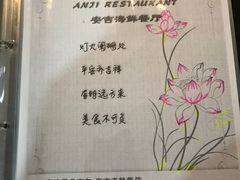 ANJI RESTAURANT
安吉海鲜餐厅
灯火阑珊处
平岳亦吉祥
有朋远方来
美食不可负